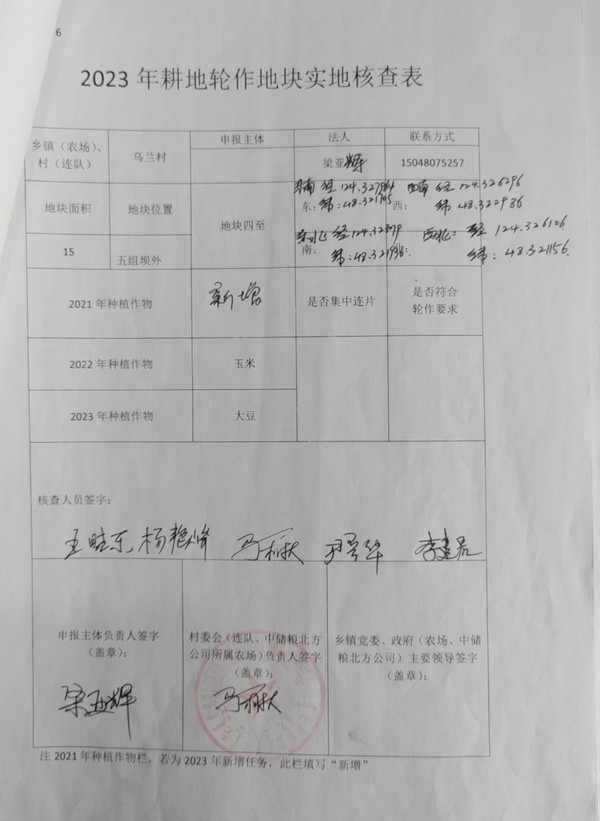 6
2023 年耕地轮作地块实地核查表
乡镇（农场）、村（连队）
乌兰村
申报主体
法人
联系方式
梁亚辉
15048075257
地块面积
地块位置
地块四至
东南 经124.327964
西南 经124.326296
东：纬:48.321705
西：纬48.320986
15
五组坝外
东北 经124.32879
西北：经 124.326106
南：
纬:48.321936
纬:48.321156
2021 年种植作物
新增
是否集中连片
是否符合轮作要求
2022 年种植作物
玉米
2023 年种植作物
大豆
核查人员签字：
杨艳峰
申报主体负责人签字（盖章）：
村委会（连队、中储粮北方公司所属农场）负责人签字（盖章）：
乡镇党委、政府（农场、中储粮北方公司）主要领导签字（盖章）：
梁亚辉
注 2021 年种植作物栏，若为 2023 年新增任务，此栏填写“新增”